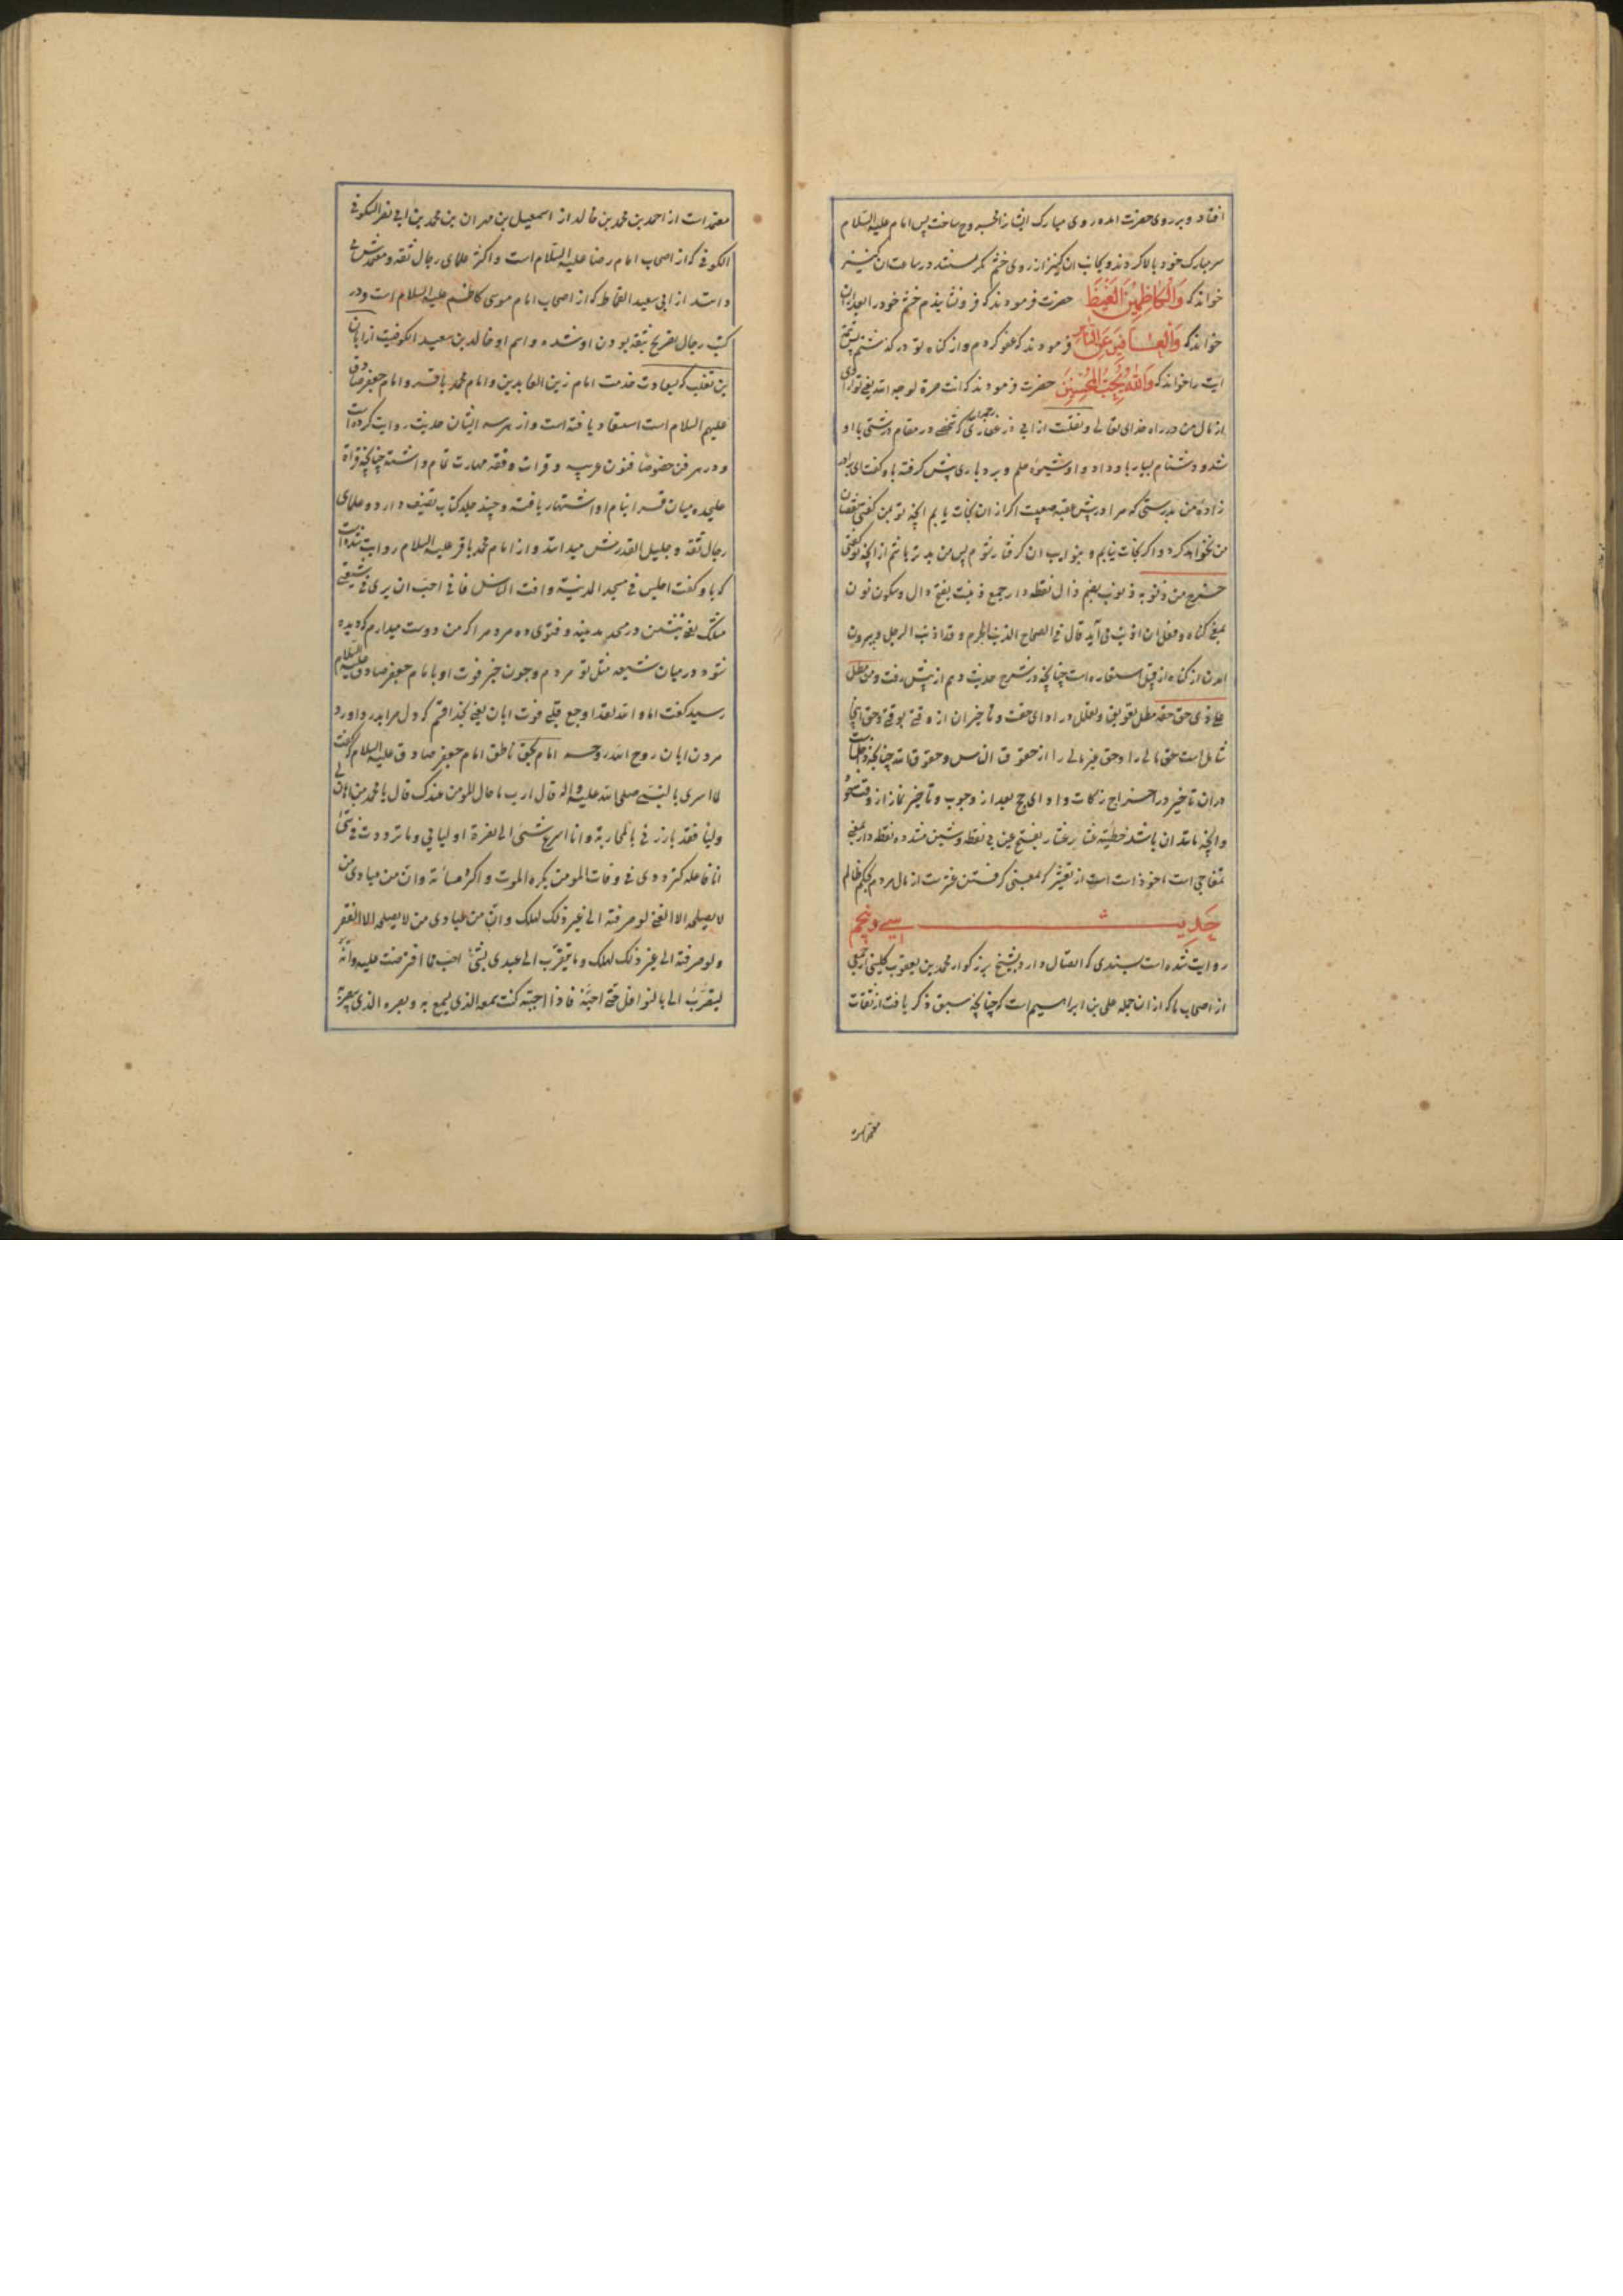 افتاد و بر روی حضرت امده روی مبارک ایشان را مجروح ساخت پس امام علیه السلام
سر مبارک خود بالا کردند و بجانب ان کنیز از روی خشم نگریستند در ساعت ان کنیز
خواند که وَالْكَاظِمِينَ الْغَيْظَ حضرت فرمودند که فرو نشاندم خشم خود را بعد ازان
خواند که وَالْعَافِينَ عَنِ النَّاسِ فرمودند که عفو کردم و از گناه تو درگذشتم پس تتمه
ایت را خواند که وَاللَّهُ يُحِبُّ الْمُحْسِنِينَ حضرت فرمودند که انت حرة لوجه الله یعنی تو ازادی
از مال من در راه خدای تعالی و نقلست از ابی ذر غفاری که شخصی در مقام درشتی با او
شد و دشنام بسیار باو داد و او شیوه حلم و بردباری پیش گرفته باو گفت ای برادر
زاده من بدرستی که مرا در پیش عقبه صعبیت اگر از ان نجات یابم انچه تو بمن گفتی نقصان
من نخواهد کرد و اگر نجات نیابم و بعذاب ان گرفتار شوم پس من بدتر باشم از انچه تو گفتی
خرج من ذنوبه ذنوب بضم ذال نقطه دار جمع ذنبت بفتح ذال و سکون نون
بمعنی گناه و فعل ان اذنب می آید قال فی الصحاح الذنب الجرم و قد اذنب الرجل و بیرون
امدن از گناه از قبیل استعاره است چنانچه در شرح حدیث دهم از پیش رفت و من مطل
علی ذی حق حقه مطل تعویق و تعلل در ادای حقست و تاخیر ان از وقتی بوقتی و حق اینجا
شامل است حق مالی را و حق غیر مالی را از حقوق الناس و حقوق الله چنانچه داخلست
در ان تاخیر در اخراج زکات و ادای حج بعد از وجوب و تاخیر نماز از وقتش
و انچه مانند ان باشد خطیئة عشار عشار بفتح عین بی نقطه و شین مشدده نقطه دار بمعنی
تمغاچی است ماخوذ است از تعشیر که بمعنی گرفتن عشرست از مال مردم بحکم ظالم
حدیث سی و پنجم
روایت شده است بسندی که اتصال دارد بشیخ بزرگوار محمد بن یعقوب کلینی از جمعی
از اصحاب ما که از ان جمله علی بن ابراهیم است که چنانچه سبق ذکر یافت از ثقات
معتمد است
معتمد است از احمد بن محمد بن خالد از اسمعیل بن مهران بن محمد بن ابی نصر السکونی
الکوفی که از اصحاب امام رضا علیه السلام است و اکثر علمای رجال ثقه و معتمدش
دانند از ابی سعید القماط که از اصحاب امام موسی کاظم علیه السلام است و در
کتب رجال تصریح بثقه بودن او شده و اسم او خالد بن سعید الکوفیست از ابان
بن تغلب که بسعادت خدمت امام زین العابدین و امام محمد باقر و امام جعفر صادق
علیهم السلام است استسعاد یافته است و از هر سه ایشان حدیث روایت کرده است
و در هر فن خصوصا فنون عربیه و قرات و فقه مهارت تمام داشته چنانچه قراة
علیحده میان قرا بنام او اشتهار یافته و چند جلد کتاب تصنیف دارد و علمای
رجال ثقه و جلیل القدرش میدانند و از امام محمد باقر علیه السلام روایت شده است
که باو گفت اجلس فی مسجد المدینة و افت الناس فانی احب ان یری فی شیعتی
مثلک یعنی بنشین در مسجد مدینه و فتوی ده مردم را که من دوست میدارم که دیده
شود در میان شیعه مثل تو مردم و چون خبر فوت او بامام جعفر صادق علیه السلام
رسید گفت اما و الله لقد اوجع قلبی موت ابان یعنی بخدا قسم که دل مرا بدرد اورد
مردن ابان روح الله روحه امام بحق ناطق امام جعفر صادق علیه السلام گفت
لما اسری بالنبی صلی الله علیه و اله قال یا رب ما حال المومن عندک قال یا محمد من اهان لی
ولیا فقد بارزنی بالمحاربة و انا اسرع شیئ الی نصرة اولیائی و ما ترددت فی شیئ
انا فاعله کترددی فی وفات المومن یکره الموت و اکره مسائته و ان من عبادی من
لا یصلحه الا الغنی لو صرفته الی غیر ذلک لهلک و ان من عبادی من لا یصلحه الا الفقر
و لو صرفته الی غیر ذلک لهلک و ما یتقرب الی عبدی بشیئ احب مما افترضت علیه و انه
لیتقرب الی بالنوافل حتی احبه فاذا احببته کنت سمعه الذی یسمع به و بصره الذی یبصر به